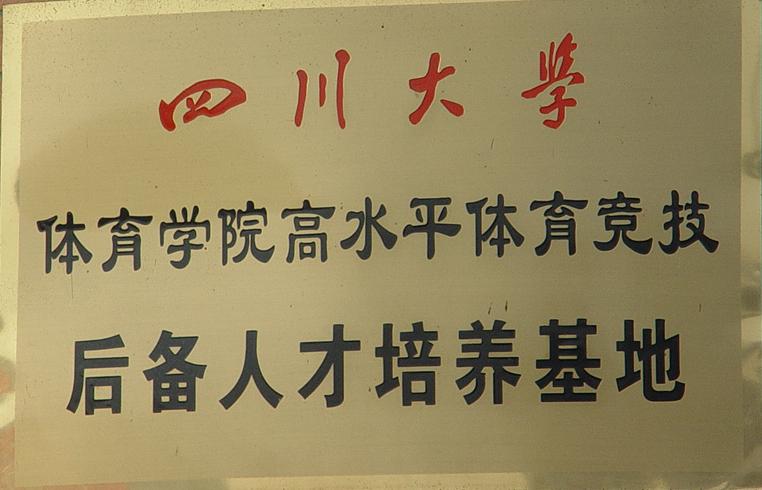 四川大学
体育学院高水平体育竞技
后备人才培养基地